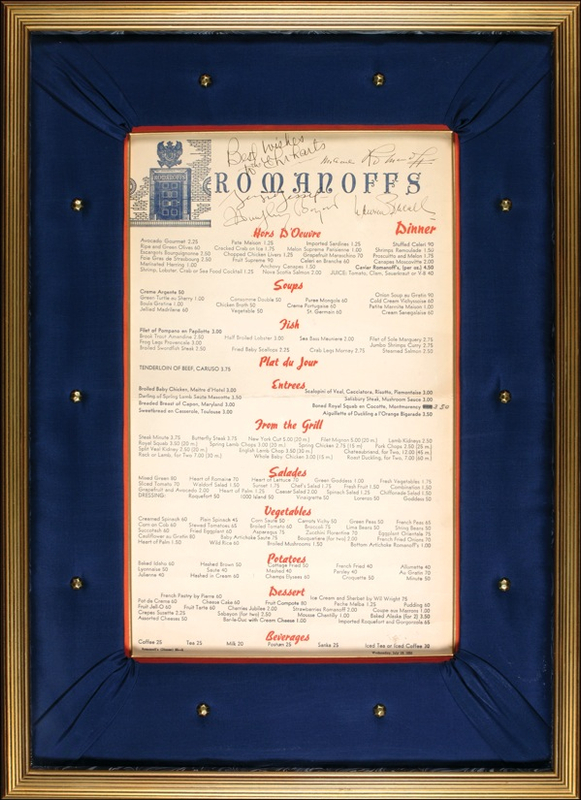 Best Wishes
ROMANOFFS
Dinner
Hors D'Oeuvre
Avocado Gourmet 2.25
Pate Maison 1.25
Imported Sardines 1.25
Stuffed Celery 90
Ripe and Green Olives 60
Cracked Crab on Ice 1.75
Melon Supreme Parisienne 1.00
Shrimps Remoulade 1.50
Escargots Bourguignonne 2.50
Chopped Chicken Livers 1.25
Grapefruit Maraschino 70
Prosciutto and Melon 1.75
Foie Gras de Strasbourg 2.50
Fruit Supreme 90
Celeri en Branche 60
Canapes Moscovitte 2.00
Marinated Herring 1.00
Anchovy Canapes 1.50
Caviar Romanoff's, (per oz.) 4.50
Shrimp, Lobster, Crab or Sea Food Cocktail 1.25
Nova Scotia Salmon 2.00
JUICE: Tomato, Clam, Sauerkraut or V-8 40
Soups
Creme Argente 50
Consomme Double 50
Puree Mongole 60
Onion Soup au Gratin 90
Green Turtle au Sherry 1.00
Chicken Broth 50
Creme Portugaise 60
Cold Cream Vichyssoise 60
Boula Gratine 1.00
Vegetable 50
St. Germain 60
Petite Marmite Maison 1.00
Jellied Madrilene 60
Cream Senegalaise 60
Fish
Filet of Pompano en Papillotte 3.00
Half Broiled Lobster 3.00
Sea Bass Meuniere 2.00
Filet of Sole Marguery 2.75
Brook Trout Amandine 2.50
Jumbo Shrimps Curry 2.75
Frog Legs Provencale 3.00
Fried Baby Scallops 2.75
Crab Legs Mornay 2.75
Steamed Salmon 2.50
Broiled Swordfish Steak 2.50
Plat du Jour
TENDERLOIN OF BEEF, CARUSO 3.75
Entrees
Broiled Baby Chicken, Maitre d'Hotel 3.00
Scalopini of Veal, Cacciatore, Risotto, Piemontaise 3.00
Darling of Spring Lamb Saute Mascotte 3.50
Salisbury Steak, Mushroom Sauce 3.00
Breaded Breast of Capon, Maryland 3.00
Boned Royal Squab en Cocotte, Montmorency
Sweetbread en Casserole, Toulouse 3.00
Aiguillette of Duckling a l'Orange Bigarade 3.50
From the Grill
Steak Minute 3.75
Butterfly Steak 3.75
New York Cut 5.00 (20 m.)
Filet Mignon 5.00 (20 m.)
Lamb Kidneys 2.50
Royal Squab 3.50 (20 m.)
Spring Lamb Chops 3.00 (20 m.)
Spring Chicken 2.75 (15 m.)
Pork Chops 2.50 (25 m.)
Split Veal Kidney 2.50 (20 m.)
English Lamb Chop 3.50 (30 m.)
Chateaubriand, for Two, 12.00 (45 m.)
Rack of Lamb, for Two, 7.00 (30 m.)
Whole Baby Chicken 3.00 (15 m.)
Roast Duckling, for Two, 7.00 (40 m.)
Salades
Mixed Green 80
Heart of Romaine 70
Heart of Lettuce 70
Green Goddess 1.00
Fresh Vegetables 1.75
Sliced Tomato 70
Waldorf Salad 1.50
Sunset 1.75
Chef's Salad 1.75
Fresh Fruit 1.50
Combination 1.50
Grapefruit and Avocado 2.00
Heart of Palm 1.25
Caesar Salad 2.00
Spinach Salad 1.25
Chiffonade Salad 1.50
DRESSING:
Roquefort 50
1000 Island 50
Vinaigrette 50
Lorenzo 50
Goddess 50
Vegetables
Creamed Spinach 60
Plain Spinach 45
Corn Saute 50
Carrots Vichy 50
Green Peas 50
French Peas 65
Corn on Cob 60
Stewed Tomatoes 65
Broiled Tomato 60
Broccoli 75
Lima Beans 50
String Beans 50
Succotash 60
Fried Eggplant 60
Asparagus 75
Zucchini Florentine 70
Eggplant Orientale 75
Cauliflower au Gratin 80
Baby Artichoke Saute 75
Bouquetiere (for two) 2.00
French Fried Onions 70
Heart of Palm 1.50
Wild Rice 60
Broiled Mushrooms 1.50
Bottom Artichoke Romanoff's 1.00
Potatoes
Baked Idaho 60
Hashed Brown 50
Cottage Fried 50
French Fried 40
Allumette 40
Lyonnaise 50
Saute 40
Mashed 40
Parsley 40
Au Gratin 70
Julienne 40
Hashed in Cream 60
Champs Elysees 60
Croquette 50
Minute 50
Dessert
French Pastry by Pierre 60
Ice Cream and Sherbet by Wil Wright 75
Pot de Creme 60
Cheese Cake 60
Fruit Compote 80
Peche Melba 1.25
Pudding 60
Fruit Jell-O 60
Fruit Tarte 60
Cherries Jubilee 2.00
Strawberries Romanoff 2.00
Coupe aux Marrons 1.00
Crepes Suzette 2.25
Sabayon (for two) 2.50
Mousse Chantilly 1.00
Baked Alaska (for 2) 3.50
Assorted Cheeses 50
Bar-le-Duc with Cream Cheese 1.00
Imported Roquefort and Gorgonzola 65
Beverages
Coffee 25
Tea 25
Milk 20
Postum 25
Sanka 25
Iced Tea or Iced Coffee 30